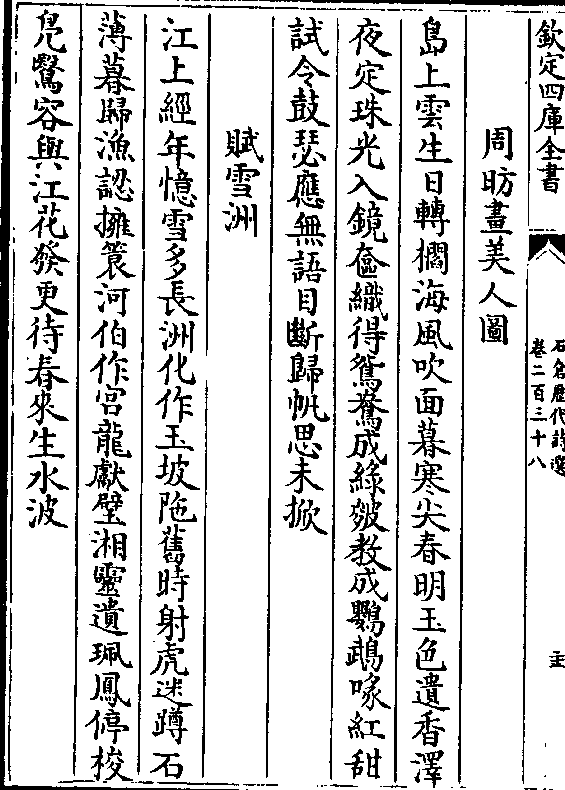 欽定四庫全書
石倉歷代詩選
卷二百三十八
周昉畫美人圖
島上雲生日轉櫚海風吹面暮寒尖春明玉色遺香澤
夜定珠光入鏡奩織得鴛鴦成綠皴教成鸚鵡喙紅甜
試令鼓瑟應無語目斷歸帆思未掀
賦雪洲
江上經年憶雪多長洲化作玉坡陁舊時射虎迷蹲石
薄暮歸漁認擁簑河伯作宮龍獻璧湘靈遺珮鳳停梭
鳬鷖容與江花發更待春來生水波